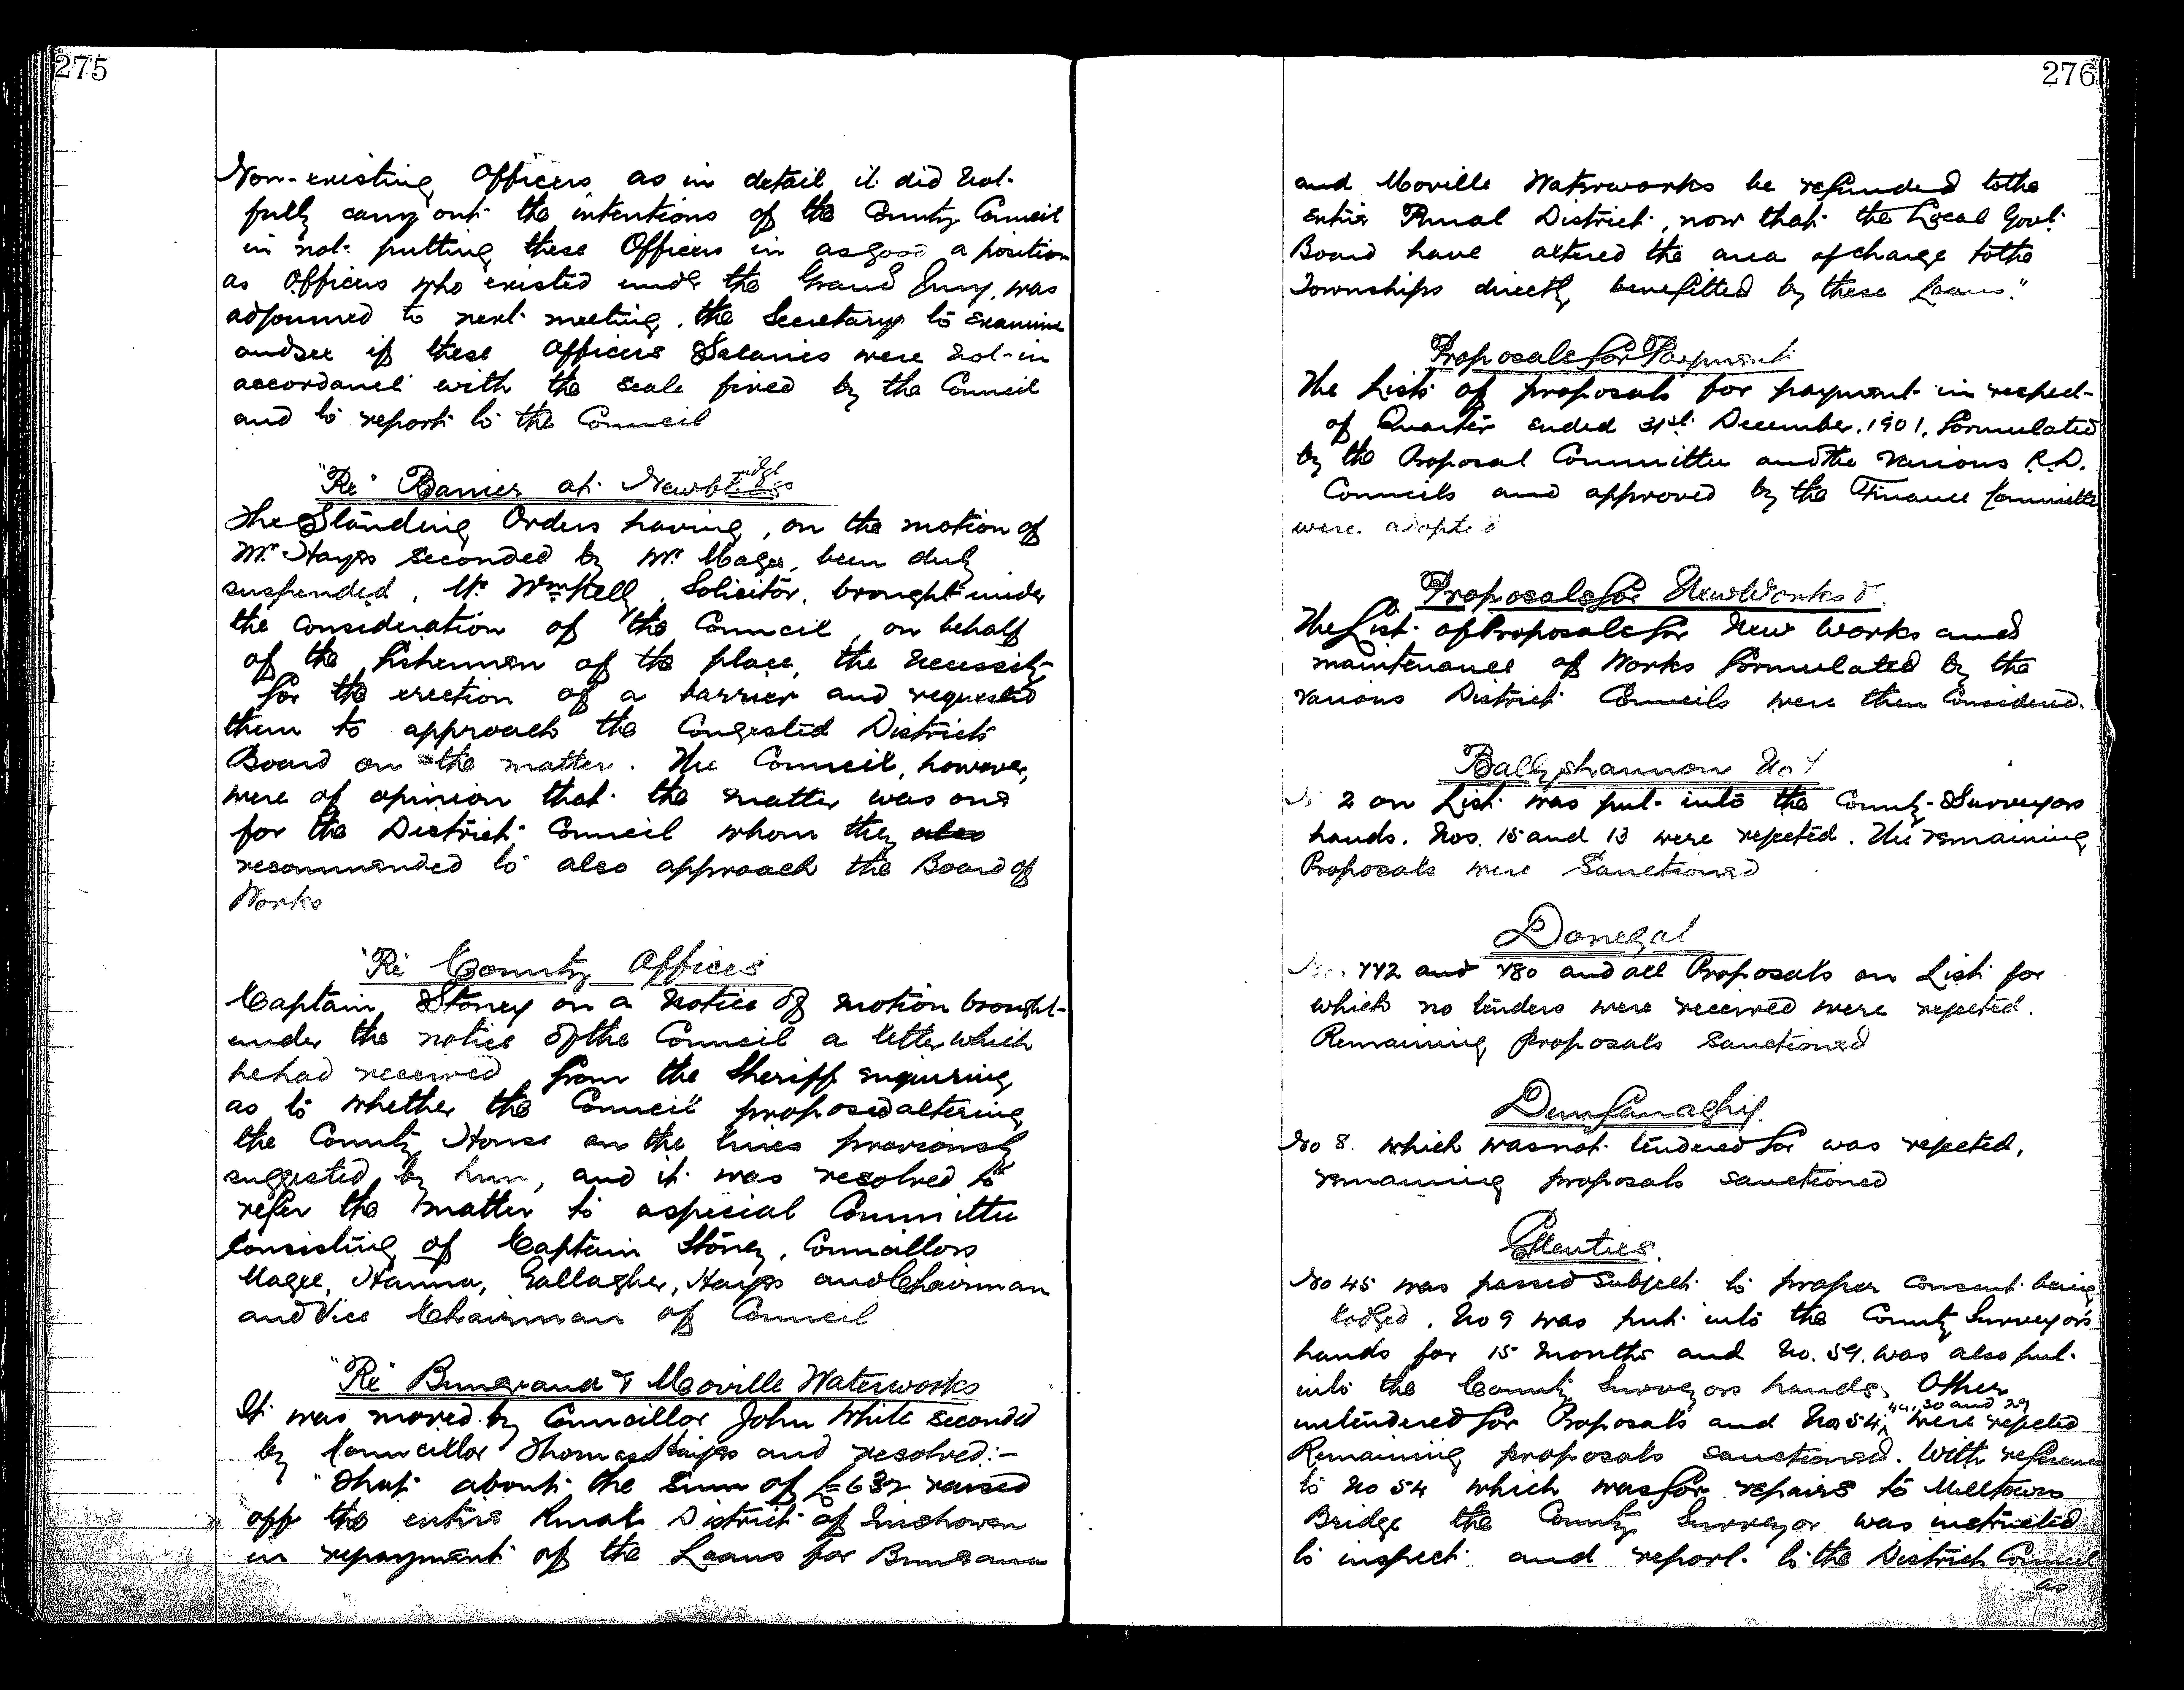 275
Non-existing Officers as in detail it did not
fully carry out the intentions of the County Council
in not putting these Officers in as good a position
as Officers who existed under the Grand Jury, was
adjourned to next meeting, the Secretary to examine
and see if these Officers Salaries were not in
accordance with the scale fixed by the Council
and to report to the Council
"Re" Barrier at
The Standing Orders having, on the motion of
Mr. Hayes seconded by Mr. Magee, been duly
suspended, Mr. Wm Kelly, Solicitor, brought under
the consideration of the Council, on behalf
of the fishermen of the place, the necessity
for the erection of a barrier and requested
them to approach the Congested Districts
Board on the matter. The Council, however,
were of opinion that the matter was one
for the District Council whom they also
recommended to also approach the Board of
Works
"Re" County Offices
Captain Stoney on a notice of motion brought
under the notice of the Council a letter which
he had received from the Sheriff inquiring
as to whether the Council proposed altering
the County House on the lines previously
suggested by him, and it was resolved to
refer the matter to a special Committee
consisting of Captain Stoney, Councillors
Magee, Hanna, Gallagher, Hayes and Chairman
and Vice Chairman of Council
"Re" Buncrana & Moville Waterworks
It was moved by Councillor John White seconded
by Councillor Thomas Hayes and resolved:-
"That about the sum of £632 raised
off the entire Rural District of Inishowen
in repayment of the Loans for Buncrana
276
and Moville Waterworks be refunded to the
entire Rural District, now that the Local Govt.
Board have altered the area of charge to the
Townships directly benefitted by these Loans."
Proposals for Payment
The Lists of proposals for payment in respect
of Quarter ended 31st December, 1901, formulated
by the Proposal Committee and the various R.D.
Councils and approved by the Finance Committee
were adopted
Proposals for New Works &
The List of Proposals for New Works and
maintenance of Works formulated by the
various District Councils were then considered.
Ballyshannon No 1
No 2 on List was put into the County Surveyors
hands. Nos. 15 and 13 were rejected. The remaining
Proposals were Sanctioned
Donegal
Nos 442 and 480 and all Proposals on List for
which no tenders were received were rejected.
Remaining Proposals Sanctioned
Dunfanaghy.
No 8. which was not tendered for was rejected,
remaining proposals sanctioned
Glenties.
No 45 was passed subject to proper consent being
lodged. No 9 was put into the County Surveyors
hands for 15 months and No. 59. was also put
into the County Surveyors hands. Other
untendered for Proposals and Nos 54, 44, 30 and 29 were rejected
Remaining proposals sanctioned. With reference
to No 54 which was for repairs to Milltown
Bridge the County Surveyor was instructed
to inspect and report to the District Council
as